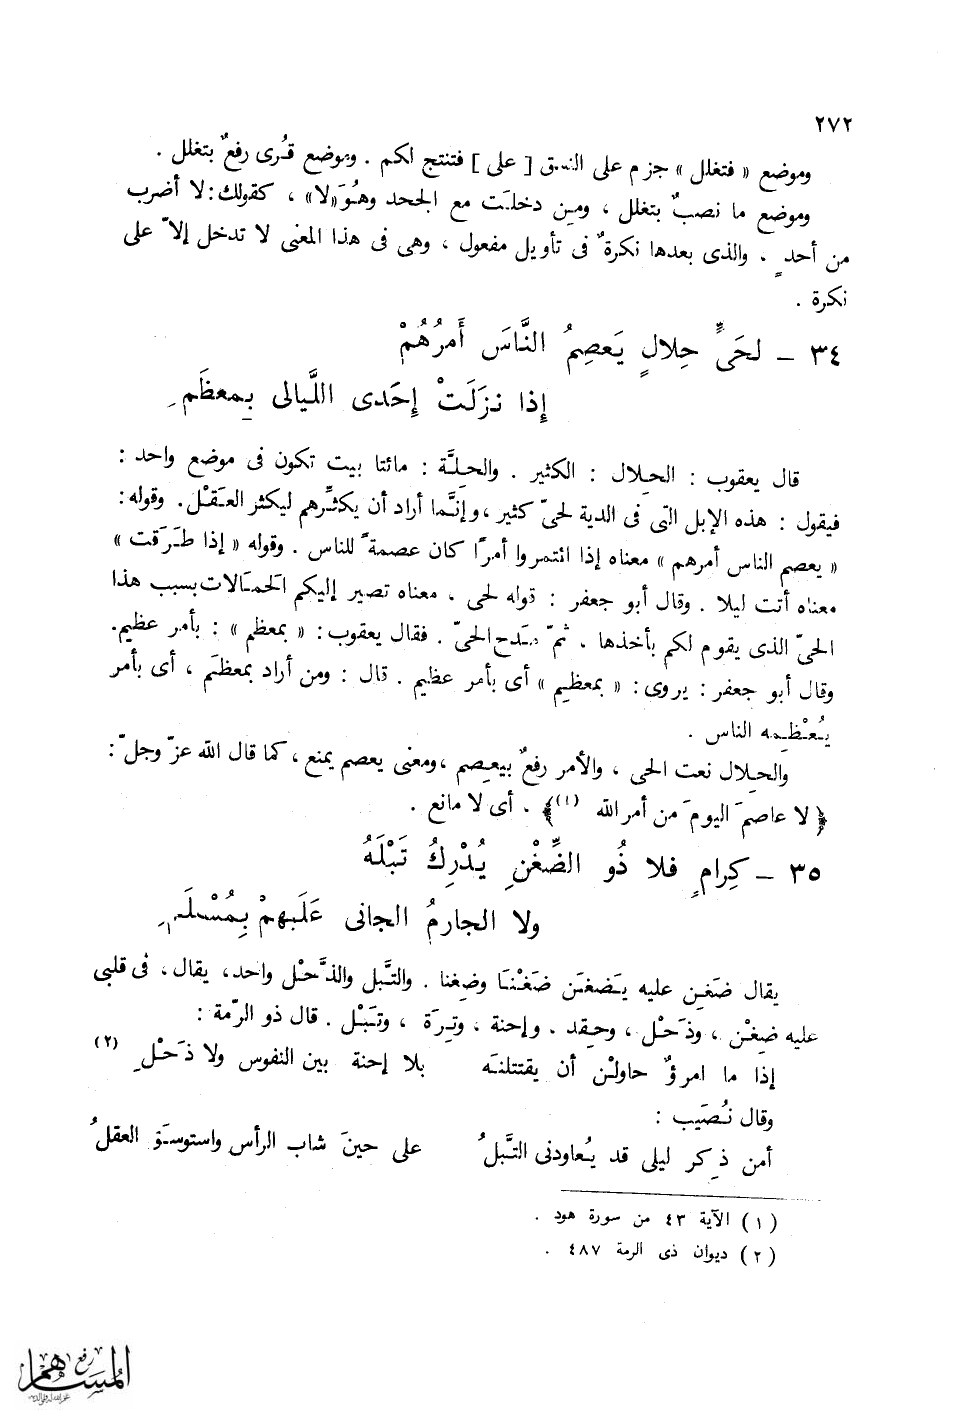 ٢٧٢
وموضع « فتغلل » جزم على النسق [ على ] فتنتج لكم . وموضع قُرى رفعٌ بتغلل .
وموضع ما نصبٌ بتغلل ، ومِن دخلَت مع الجحد وهُوَ «لا» ، كقولك: لا أضرب
من أحدٍ . والذى بعدها نكرةٌ فى تأويل مفعول ، وهى فى هذا المعنى لا تدخل إلاّ على
نكرة .
٣٤ – لحَىٍّ حِلالٍ يَعصِمُ النَّاسَ أَمرُهُمْ
إذا نزَلَتْ إحَدى اللَّيالى بِمعظَمِ
قال يعقوب : الحِلال : الكثير . والحِلَّة : مائتا بيت تكون فى موضع واحد :
فيقول : هذه الإبل التى فى الدية لحىّ كثير ، وإنَّما أراد أن يكثِّرهم ليكثر العَقْل. وقوله :
« يعصم الناس أمرهم » معناه إذا ائتمروا أمرًا كان عصمةً للناس . وقوله « إذا طَرَقت »
معناه أتت ليلا . وقال أبو جعفر : قوله لحى ، معناه تصير إليكم الحَمَالات بسبب هذا
الحىّ الذى يقوم لكم بأخذها . ثمّ مَدح الحىّ . فقال يعقوب: « بمعظم » : بأمر عظيم.
وقال أبو جعفر : يروى: « بمعظِيم » أى بأمر عظيم . قال : ومن أراد بمعظَم ، أى بأمر
يُعْظِمه الناس .
والحِلال نعت الحى ، والأمر رفعٌ بيعصِم ، ومعنى يعصم يمنع ، كما قال الله عزّ وجلّ :
﴿ لا عاصمَ اليومَ من أمر الله (١)﴾ . أى لا مانع .
٣٥ – كِرامٍ فلا ذُو الضِّغْنِ يُدْرِكُ تَبْلَهُ
ولا الجارمُ الجانى عَلَيهِمْ بِمُسْلَمِ
يقال ضَغِن عليه يَضغَن ضَغْنا وضِغنا . والتَّبل والذَّحْل واحد، يقال، فى قلبى
عليه ضِغْن ، وذَحْل ، وحِقد . وإحنة ، وتِرَة ، وتَبْل . قال ذو الرّمة :
إذا ما امرؤٌ حاولْن أن يقتتلنَه     بلا إحنة بين النفوس ولا ذَحْلِ (٢)
وقال نُصَيب :
أمن ذِكر ليلى قد يُعاودنى التَّبلُ     على حينَ شاب الرأس واستوسَق العقلُ
(١) الآية ٤٣ من سورة هود .
(٢) ديوان ذى الرمة ٤٨٧ .